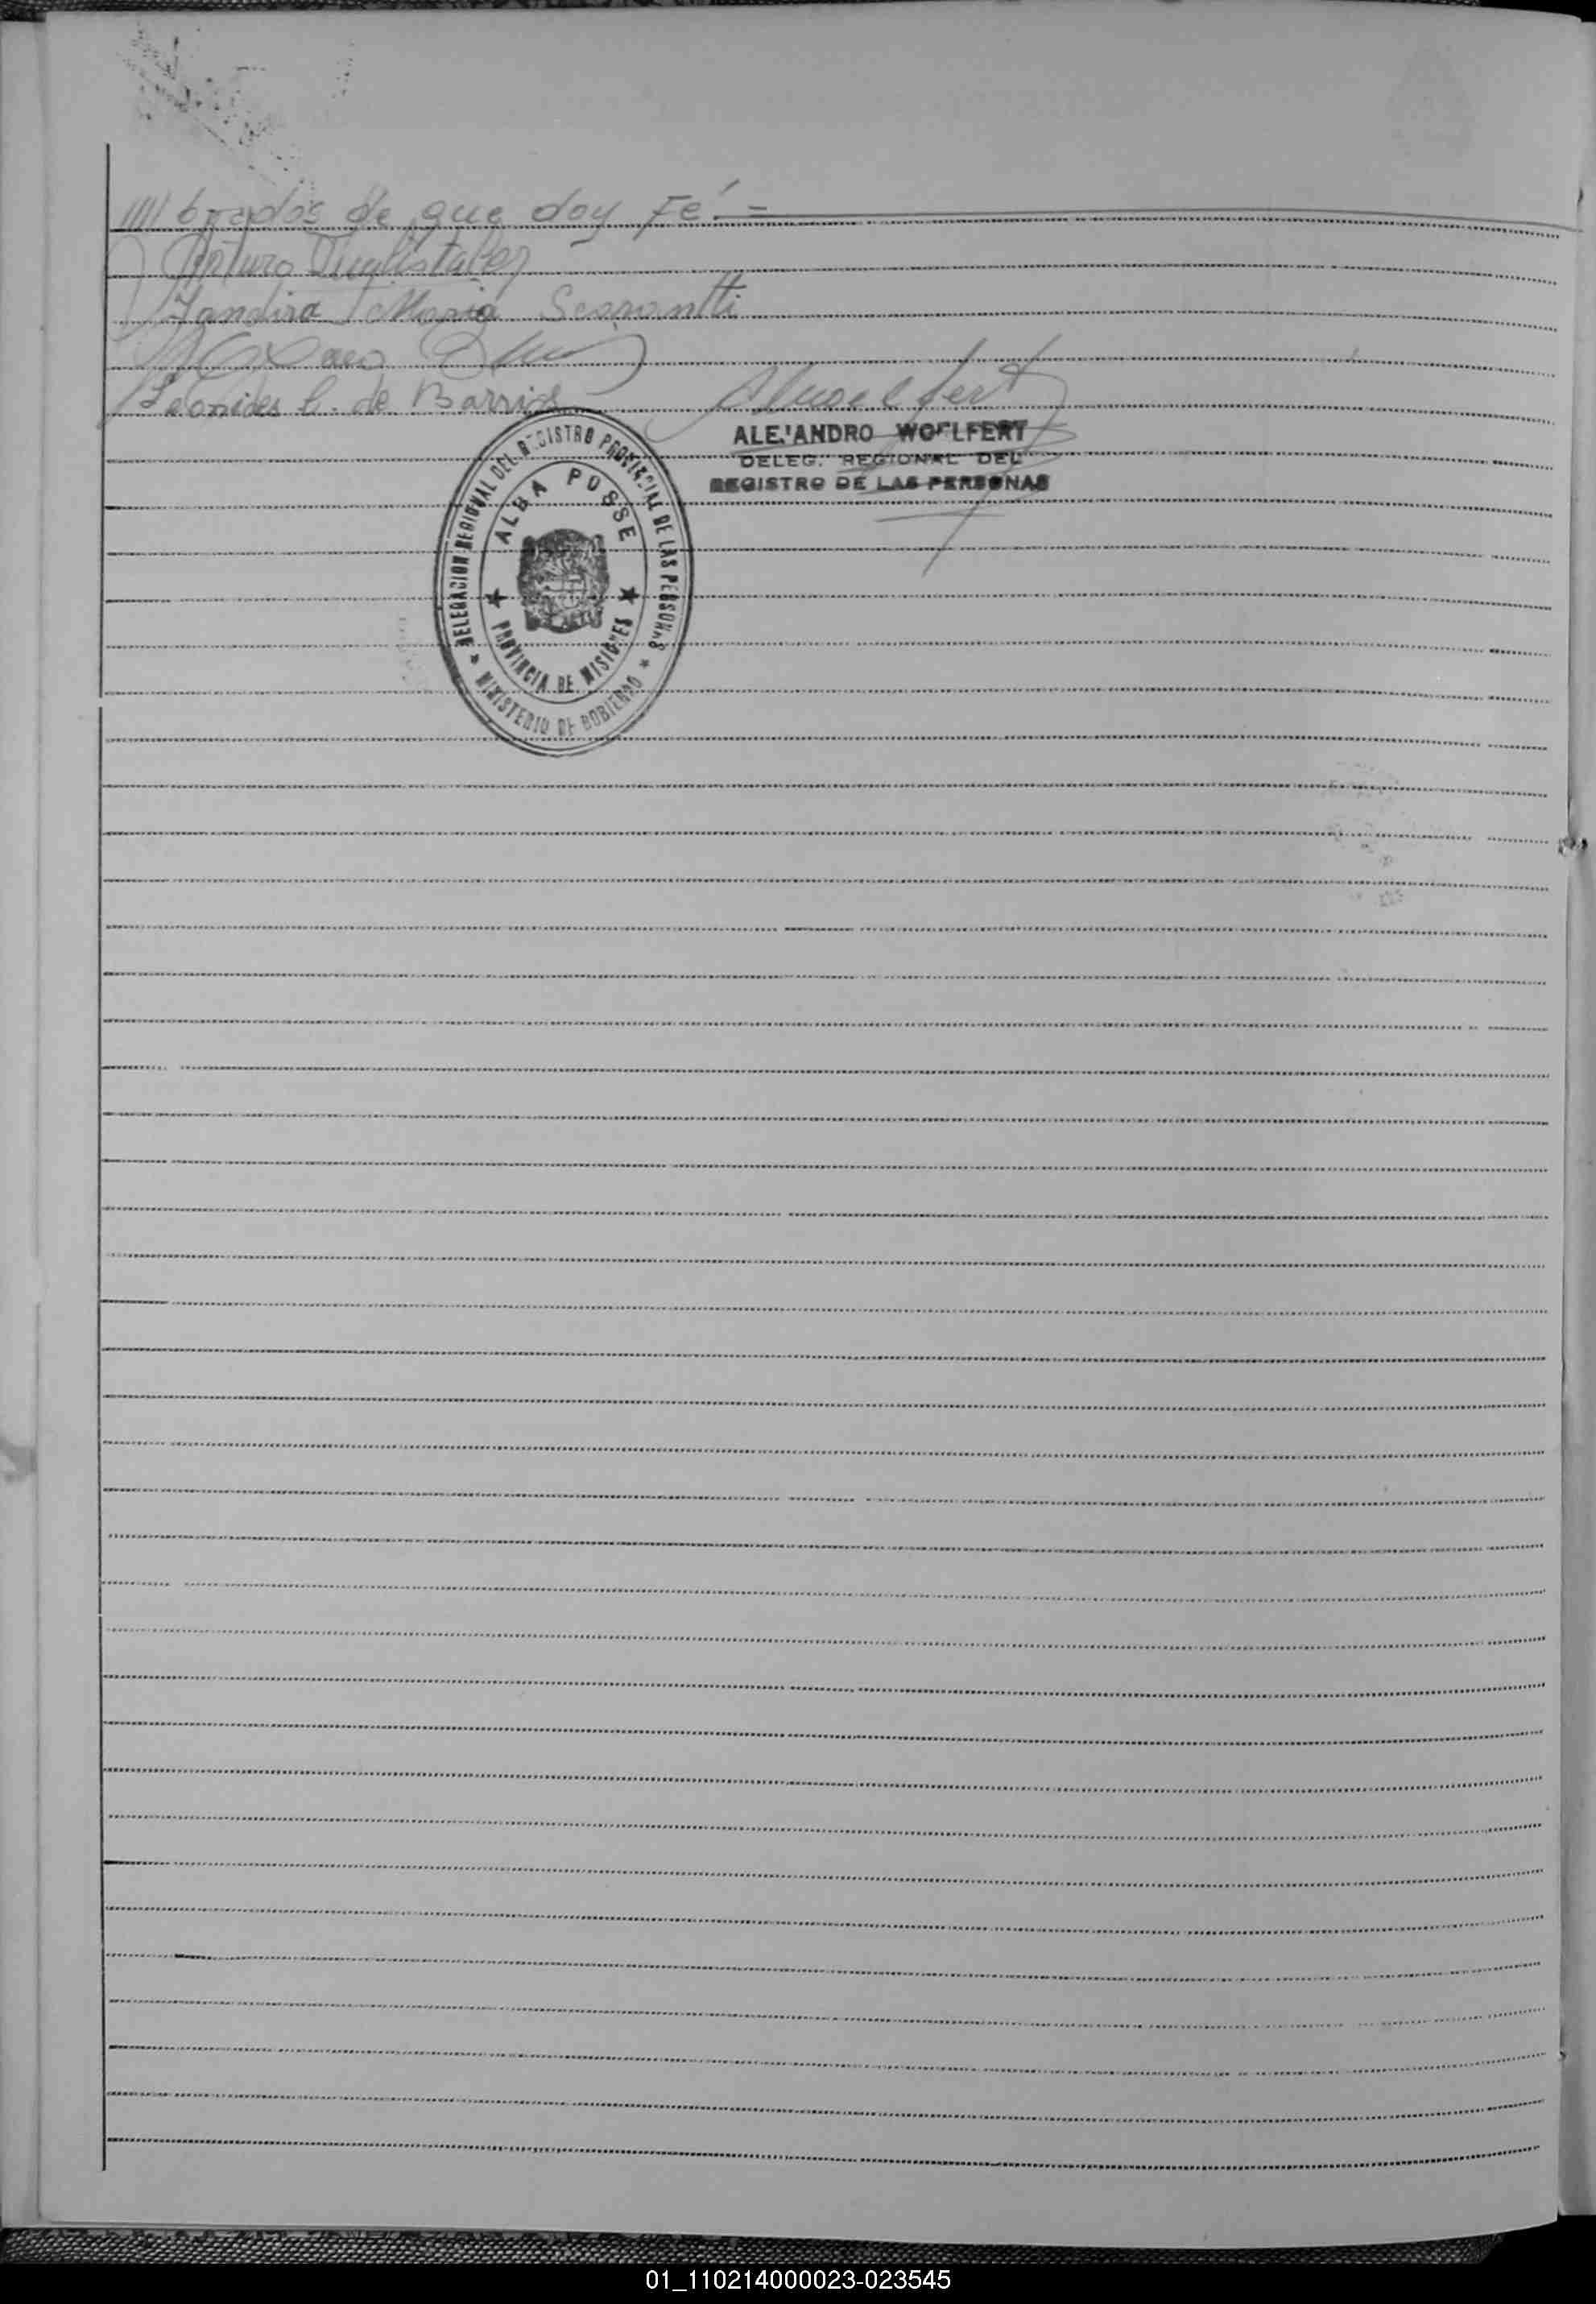 //// brados de que doy Fé.=
Arturo
Jandira Maria Scarantti
Leonides C. de Barrios
ALEJANDRO WOELFERT
DELEG. REGIONAL DEL
REGISTRO DE LAS PERSONAS
DELEGACION REGIONAL DEL REGISTRO PROVINCIAL DE LAS PERSONAS
ALBA POSSE
PROVINCIA DE MISIONES
MINISTERIO DE GOBIERNO
01_110214000023-023545